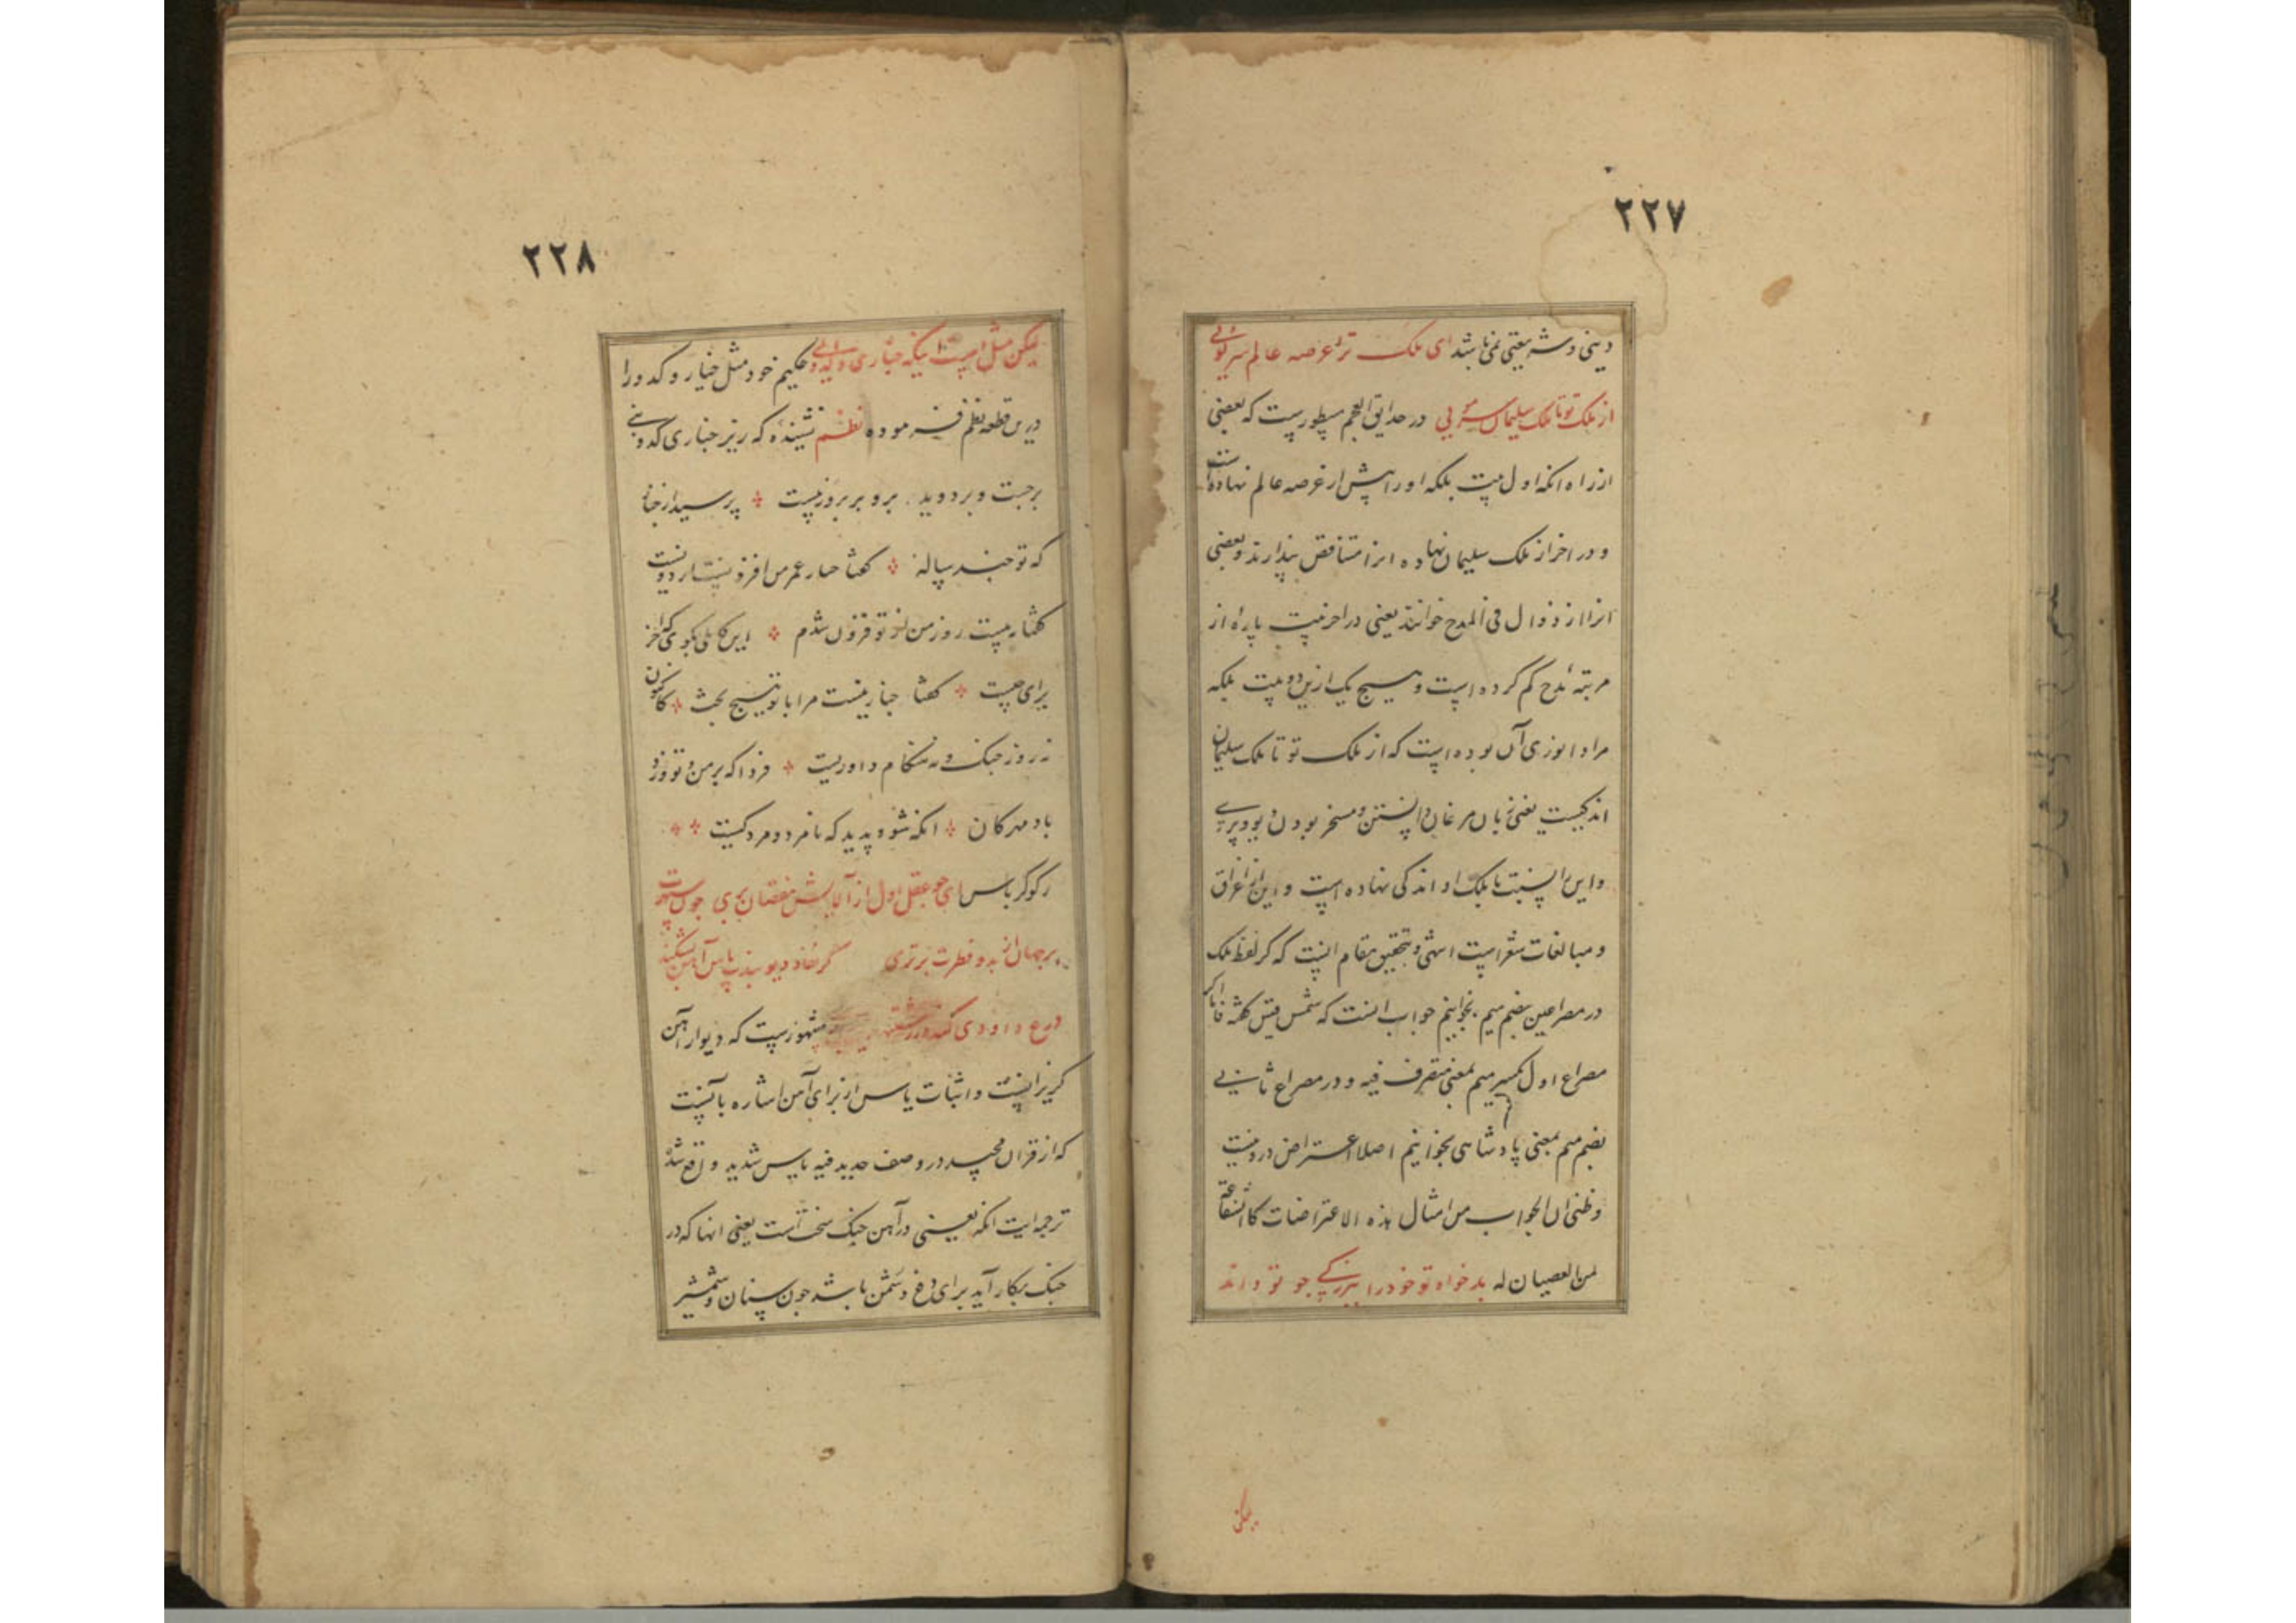 ٢٢٧
دینی و شریعتی نمی باشد ای ملک ترا عرصه عالم سر کوئی
از ملک تو تا ملک سلیمان سر مویی در حدایق العجم مسطورست که بعضی
از راه انکه اول بیت بلکه او را پیش از عرصه عالم نهاده است
و در اخر از ملک سلیمان نهاده انرا متناقض پندارند و بعضی
انرا از زوال فی المدح خوانند یعنی در اخر بیت پاره از
مرتبه مدح کم کرده است و هیچ یک ازین دو نیست بلکه
مراد انوری آن بوده است که از ملک تو تا ملک سلیمان
اندکیست یعنی زبان مرغان دانستن و مسخر بودن دیو و پری
و این را نسبت با ملک او اندکی نهاده است و این از اغراق
و مبالغات شعراست انتهی و تحقیق مقام انست که کر لفظ ملک
در مصراعین بضم میم بخوانیم جواب انست که شمس قیس کفته فاما اکر
مصراع اول بکسر میم بمعنی متصرف فیه و در مصراع ثانی
بضم میم بمعنی پادشاهی بخوانیم اصلا اعتراض درو نیست
و ظنی ان الجواب من امثال هذه الاعتراضات کالشفاعة
لمن العصیان له بدخواه تو خود را ببزرکی چو تو داند
لیکن
٢٢٨
لیکن مثل است اینکه چناری و کدوئی و حکیم خود مثل چنار و کدو را
درین قطعه نظم فرموده نظم نشینده که زیر چناری کدوبنی
برجست و بردوید برو بر بروز بیست پرسید از چنار
که تو چند ساله کفتا چنار عمر من افزونتر از دویست
کفتا به بیست روز من از تو فزون شدم این کاهلی بکوی که آخر
برای چیست کفتا چنار نیست مرا با تو هیچ بحث کاکنون
نه روز جنک و نه هنکام داوریست فردا که بر من و تو وزد
باد مهرکان انکه شود پدید که نامرد و مرد کیست
رکوکرباس ای چو عقل اول از آلایش نقصان بری چون سپهرت
بر جهان از بدو فطرت برتری کر نفاذ دیو بندت یاس آهن بشکند
درع داودی کند در مشهورست که دیو از آهن
کریزانست و اثبات یاس از برای آهن اشاره بآنست
که از قران مجید در وصف حدید فیه باس شدید واقع شد
ترجمه ایت انکه یعنی در آهن جنک سخت است یعنی انها که در
جنک بکار آید برای دفع دشمن باشد چون سنان و شمشیر